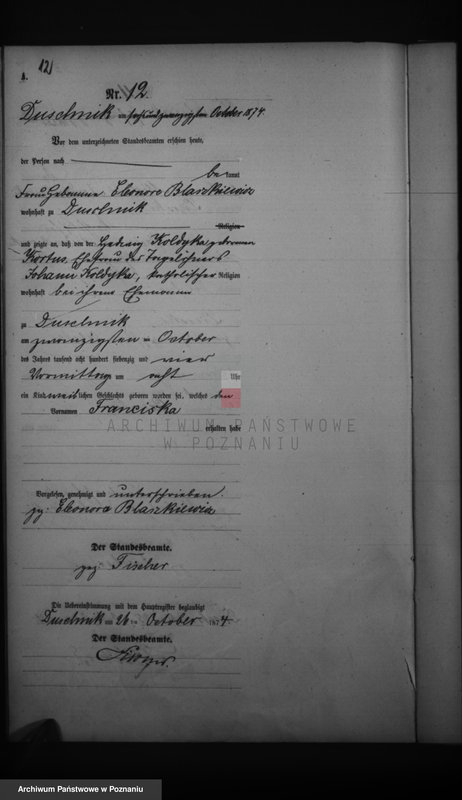 A.
12)
Nr. 12.
Duschnik am sechsundzwanzigsten October 1874.
Vor dem unterzeichneten Standesbeamten erschien heute,
der Person nach
be kannt
Frau Hebamme Eleonora Blaszkiewicz
wohnhaft zu Duschnik
Religion
und zeigte an, daß von der Hedwig Koldyka geborenen
Kortus, Ehefrau des Tagelöhners
Johann Koldyka, katholischer Religion
wohnhaft bei ihrem Ehemanne
zu Duschnik
am zwanzigsten ten October
des Jahres tausend acht hundert siebenzig und vier
Vormittag um acht Uhr
ein Kind weiblichen Geschlechts geboren worden sei, welches den
Vornamen Franciska
erhalten habe
Vorgelesen, genehmigt und unterschrieben.
gez. Eleonora Blaszkiewicz
Der Standesbeamte.
gez Fischer
Die Uebereinstimmung mit dem Hauptregister beglaubigt
Duschnik am 26 ten October 1874
Der Standesbeamte.
ARCHIWUM PAŃSTWOWE
W POZNANIU
Archiwum Państwowe w Poznaniu